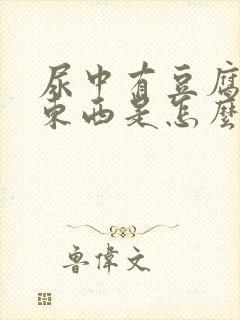 尿中有豆腐
东西是怎麼
鲁偉文